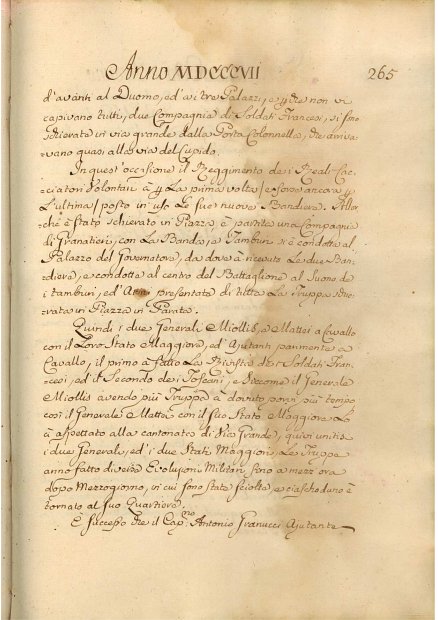 Anno MDCCCVII
265
d'avanti al Duomo, ed'ai tre Palazzi, e che non vi
capivano tutti, due Compagnia di Soldati Francesi, si sono
schierate in via grande dalla Porta Colonnella, che arriva-
-vano quasi alla via del Cupido.
In quest'occasione il Reggimento dei Reali Cac-
-ciatori Volontari à La prima volta, e forse ancora
L'ultima, posto in uso Le sue nuove Bandiere. Allor-
chè è stato schierato in Piazza, è partita una Compagnia
di Granatieri, con La Banda, e Tamburi si è condotta al
Palazzo del Governatore, da dove à ricevute Le due Ban-
-diere, e condotte al centro del Battaglione al Suono de
i tamburi, ed' Armi presentate di tutta La Truppa schie-
-rata in Piazza in Parata.
Quindi i due Generali Miollis, e Mattei a Cavallo
con il Loro Stato Maggiore, ed' Ajutanti parimente a
Cavallo, il primo à fatto La Rivista dei Soldati Fran-
-cesi, ed il Secondo dei Toscani, e siccome il Generale
Miollis avendo più Truppa à dovuto porvi più tempo
così il Generale Mattei con il suo Stato Maggiore L'
à aspettato alla cantonata di Via Grande, quivi unitisi
i due Generali, ed' i due Stati Maggiori Le Truppe
anno fatto diverse Evoluzioni Militari fino a mezz'ora
dopo Mezzogiorno, in cui sono state sciolte, e ciascheduno è
tornato al suo Quartiere.
È successo che il Cap.no Antonio Granucci Ajutante